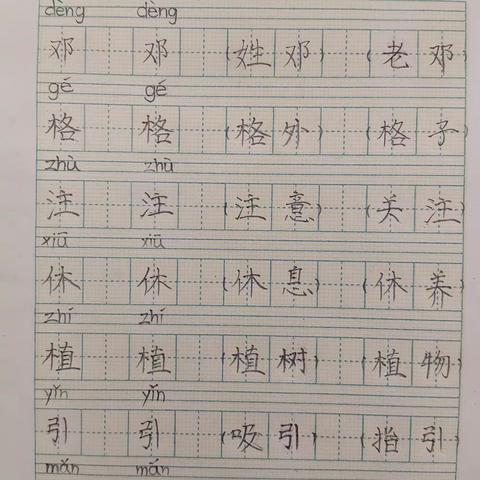 dèng dèng
邓 邓 (姓邓) (老邓)
gé gé
格 格 (格外) (格子)
zhù zhù
注 注 (注意) (关注)
xiū xiū
休 休 (休息) (休养)
zhí zhí
植 植 (植树) (植物)
yǐn yǐn
引 引 (吸引) (指引)
mǎn mǎn